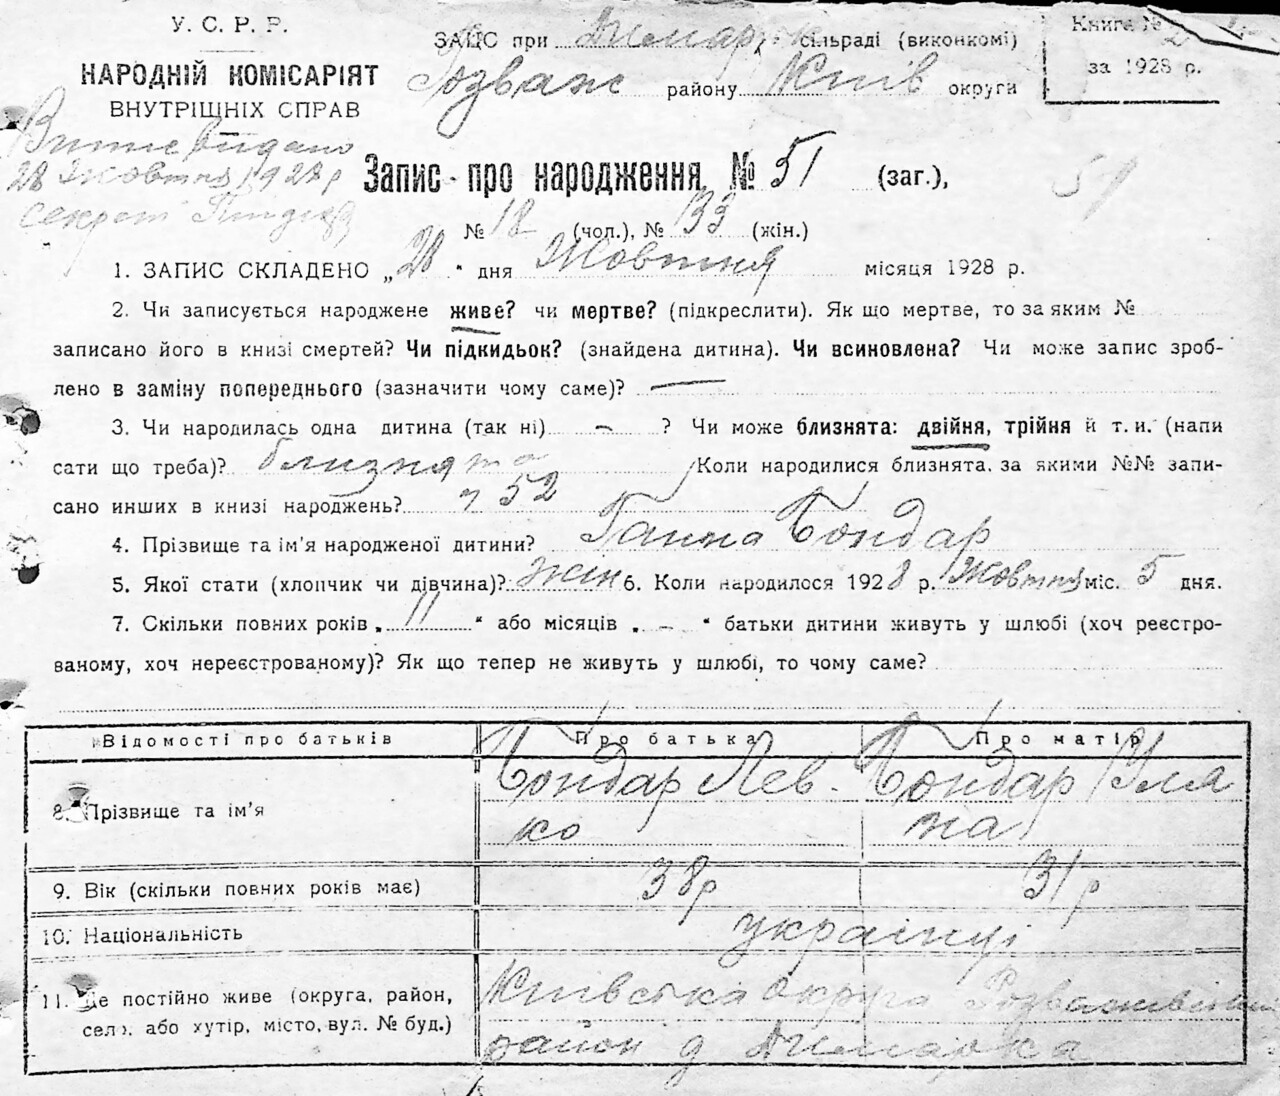 У. С. Р. Р.
НАРОДНІЙ КОМІСАРІЯТ
ВНУТРІШНІХ СПРАВ
ЗАЦС при Димарк сільраді (виконкомі)
Розваж району Київ округи
Книга № 2
за 1928 р.
Витяг видано
28 Жовтня 1928 р
секрет
Запис про народження № 51 (заг.),
51
№ 18 (чол.), № 33 (жін.)
1. ЗАПИС СКЛАДЕНО „28" дня Жовтня місяця 1928 р.
2. Чи записується народжене живе? чи мертве? (підкреслити). Як що мертве, то за яким №
записано його в книзі смертей? Чи підкидьок? (знайдена дитина). Чи всиновлена? Чи може запис зроб-
лено в заміну попереднього (зазначити чому саме)? —
3. Чи народилась одна дитина (так ні) - ? Чи може близнята: двійня, трійня й т. и. (напи
сати що треба)? близнята Коли народилися близнята, за якими №№ запи-
сано инших в книзі народжень? 52
4. Прізвище та ім'я народженої дитини? Ганна Бондар
5. Якої стати (хлопчик чи дівчина)? жін 6. Коли народилося 1928 р. Жовтня міс. 5 дня.
7. Скільки повних років „ 11 " або місяців „ - " батьки дитини живуть у шлюбі (хоч реєстро-
ваному, хоч нереєстрованому)? Як що тепер не живуть у шлюбі, то чому саме?
Відомості про батьків Про батька Про матір
8. Прізвище та ім'я Бондар Лев- Бондар Уля
ко на
9. Вік (скільки повних років має) 38р 31р
10. Національність українці
11. Де постійно живе (округа, район, Київська округа Розважівський
село, або хутір, місто, вул. № буд.) район д Димарка